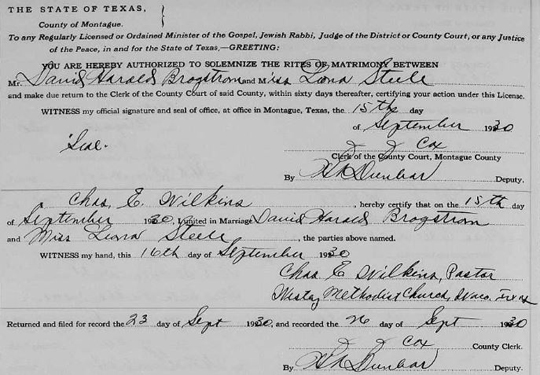 THE STATE OF TEXAS,
County of Montague.
To any Regularly Licensed or Ordained Minister of the Gospel, Jewish Rabbi, Judge of the District or County Court, or any Justice
of the Peace, in and for the State of Texas,—GREETING:
YOU ARE HEREBY AUTHORIZED TO SOLEMNIZE THE RITES OF MATRIMONY BETWEEN
Mr. David Harald Brogstrom and Miss Liona Steele
and make due return to the Clerk of the County Court of said County, within sixty days thereafter, certifying your action under this License.
WITNESS my official signature and seal of office, at office in Montague, Texas, the 15th day
of September 1930
Seal. J J Cox
Clerk of the County Court, Montague County
By Dunbar Deputy.
I, Chas, E. Wilkins, hereby certify that on the 15th day
of September 1930, I united in Marriage David Harald Brogstrom
and Miss Liona Steele, the parties above named.
WITNESS my hand, this 16th day of September 1930
Chas E Wilkins, Pastor
Methodist Church, Waco, Texas
Returned and filed for record the 23 day of Sept 1930, and recorded the 26 day of Sept 1930
J J Cox County Clerk.
By Dunbar Deputy.